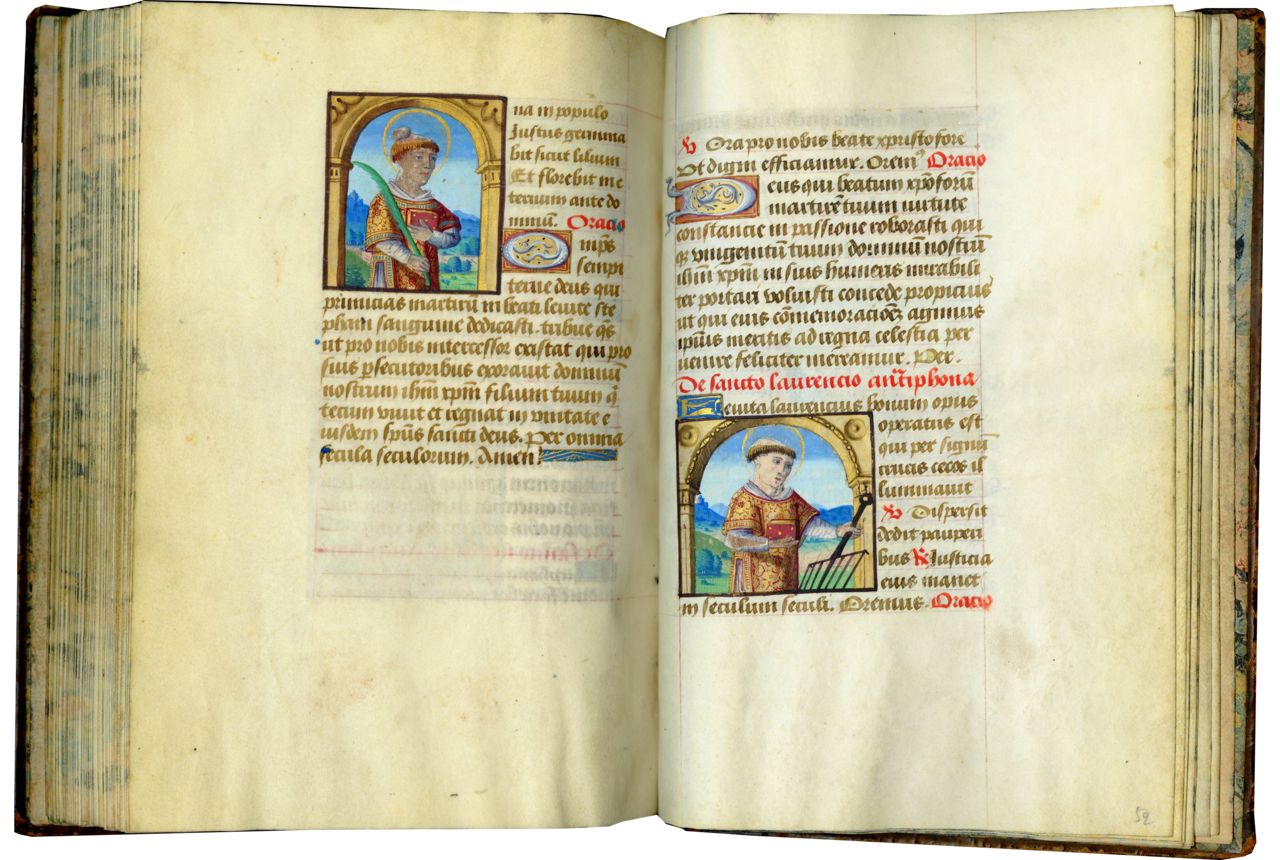 na in populo
Justus germina
bit sicut lilium
Et florebit in e
ternum ante do
minum. Oracio
Omps̄
sempi
terne deus qui
primicias martirū in beati leuite ste
phani sanguine dedicasti. tribue q̄s
ut pro nobis intercessor existat qui pro
suis ꝑsecutoribus exorauit dominū
nostrum ihm̄ xpm̄ filium tuum q̄
tecum viuit et regnat in vnitate e
iusdem sp̄us sancti deus. Per omnia
secula seculorum. Amen.
℣ Ora pro nobis beate xpristofore
Vt digni efficiamur. Orem⁹ Oracio
Deus qui beatum xp̄oforū
martirē tuum uirtute
constancie in passione roborasti qui
q̄ vnigenitū tuum dominū nostrū
ihm̄ xpm̄ in suis humeris mirabili
ter portari voluisti concede propicius
ut qui eius cōmemoracionē agimus
ipsius meritis ad regna celestia per
uenire feliciter mereamur. Per.
De sancto laurencio antiphona
Leuita laurencius bonum opus
operatus est
qui per signū
crucis cecos il
luminauit
℣ Dispersit
dedit pauperi
bus ℟ Justicia
eius manet
in seculum seculi. Oremus. Oracio
52